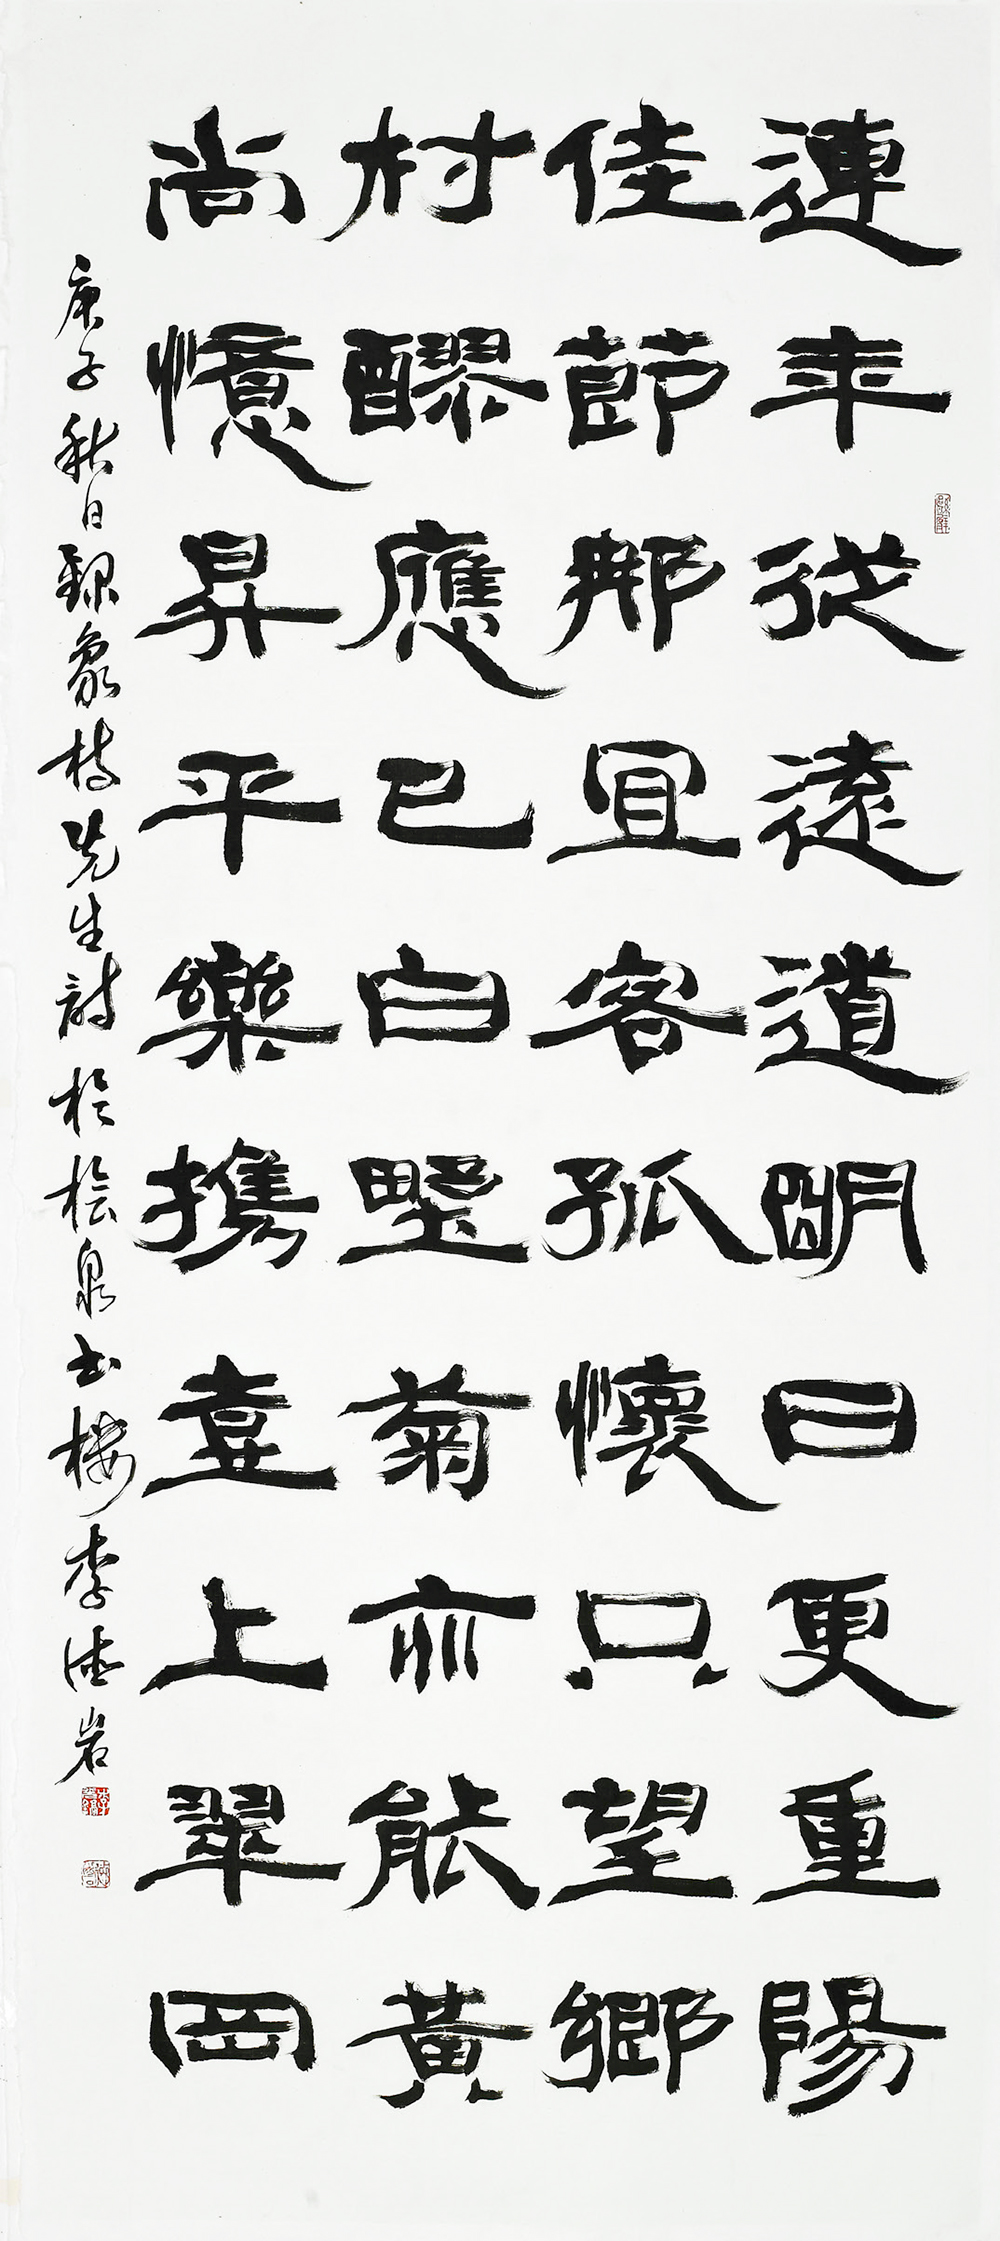 連年從遠道明日更重陽
佳節那宜客孤懷只望鄉
村醪應已白野菊亦能黃
尚憶昇平樂攜壺上翠岡
庚子秋日錄象枝先生詩於桧泉书楼李法岩